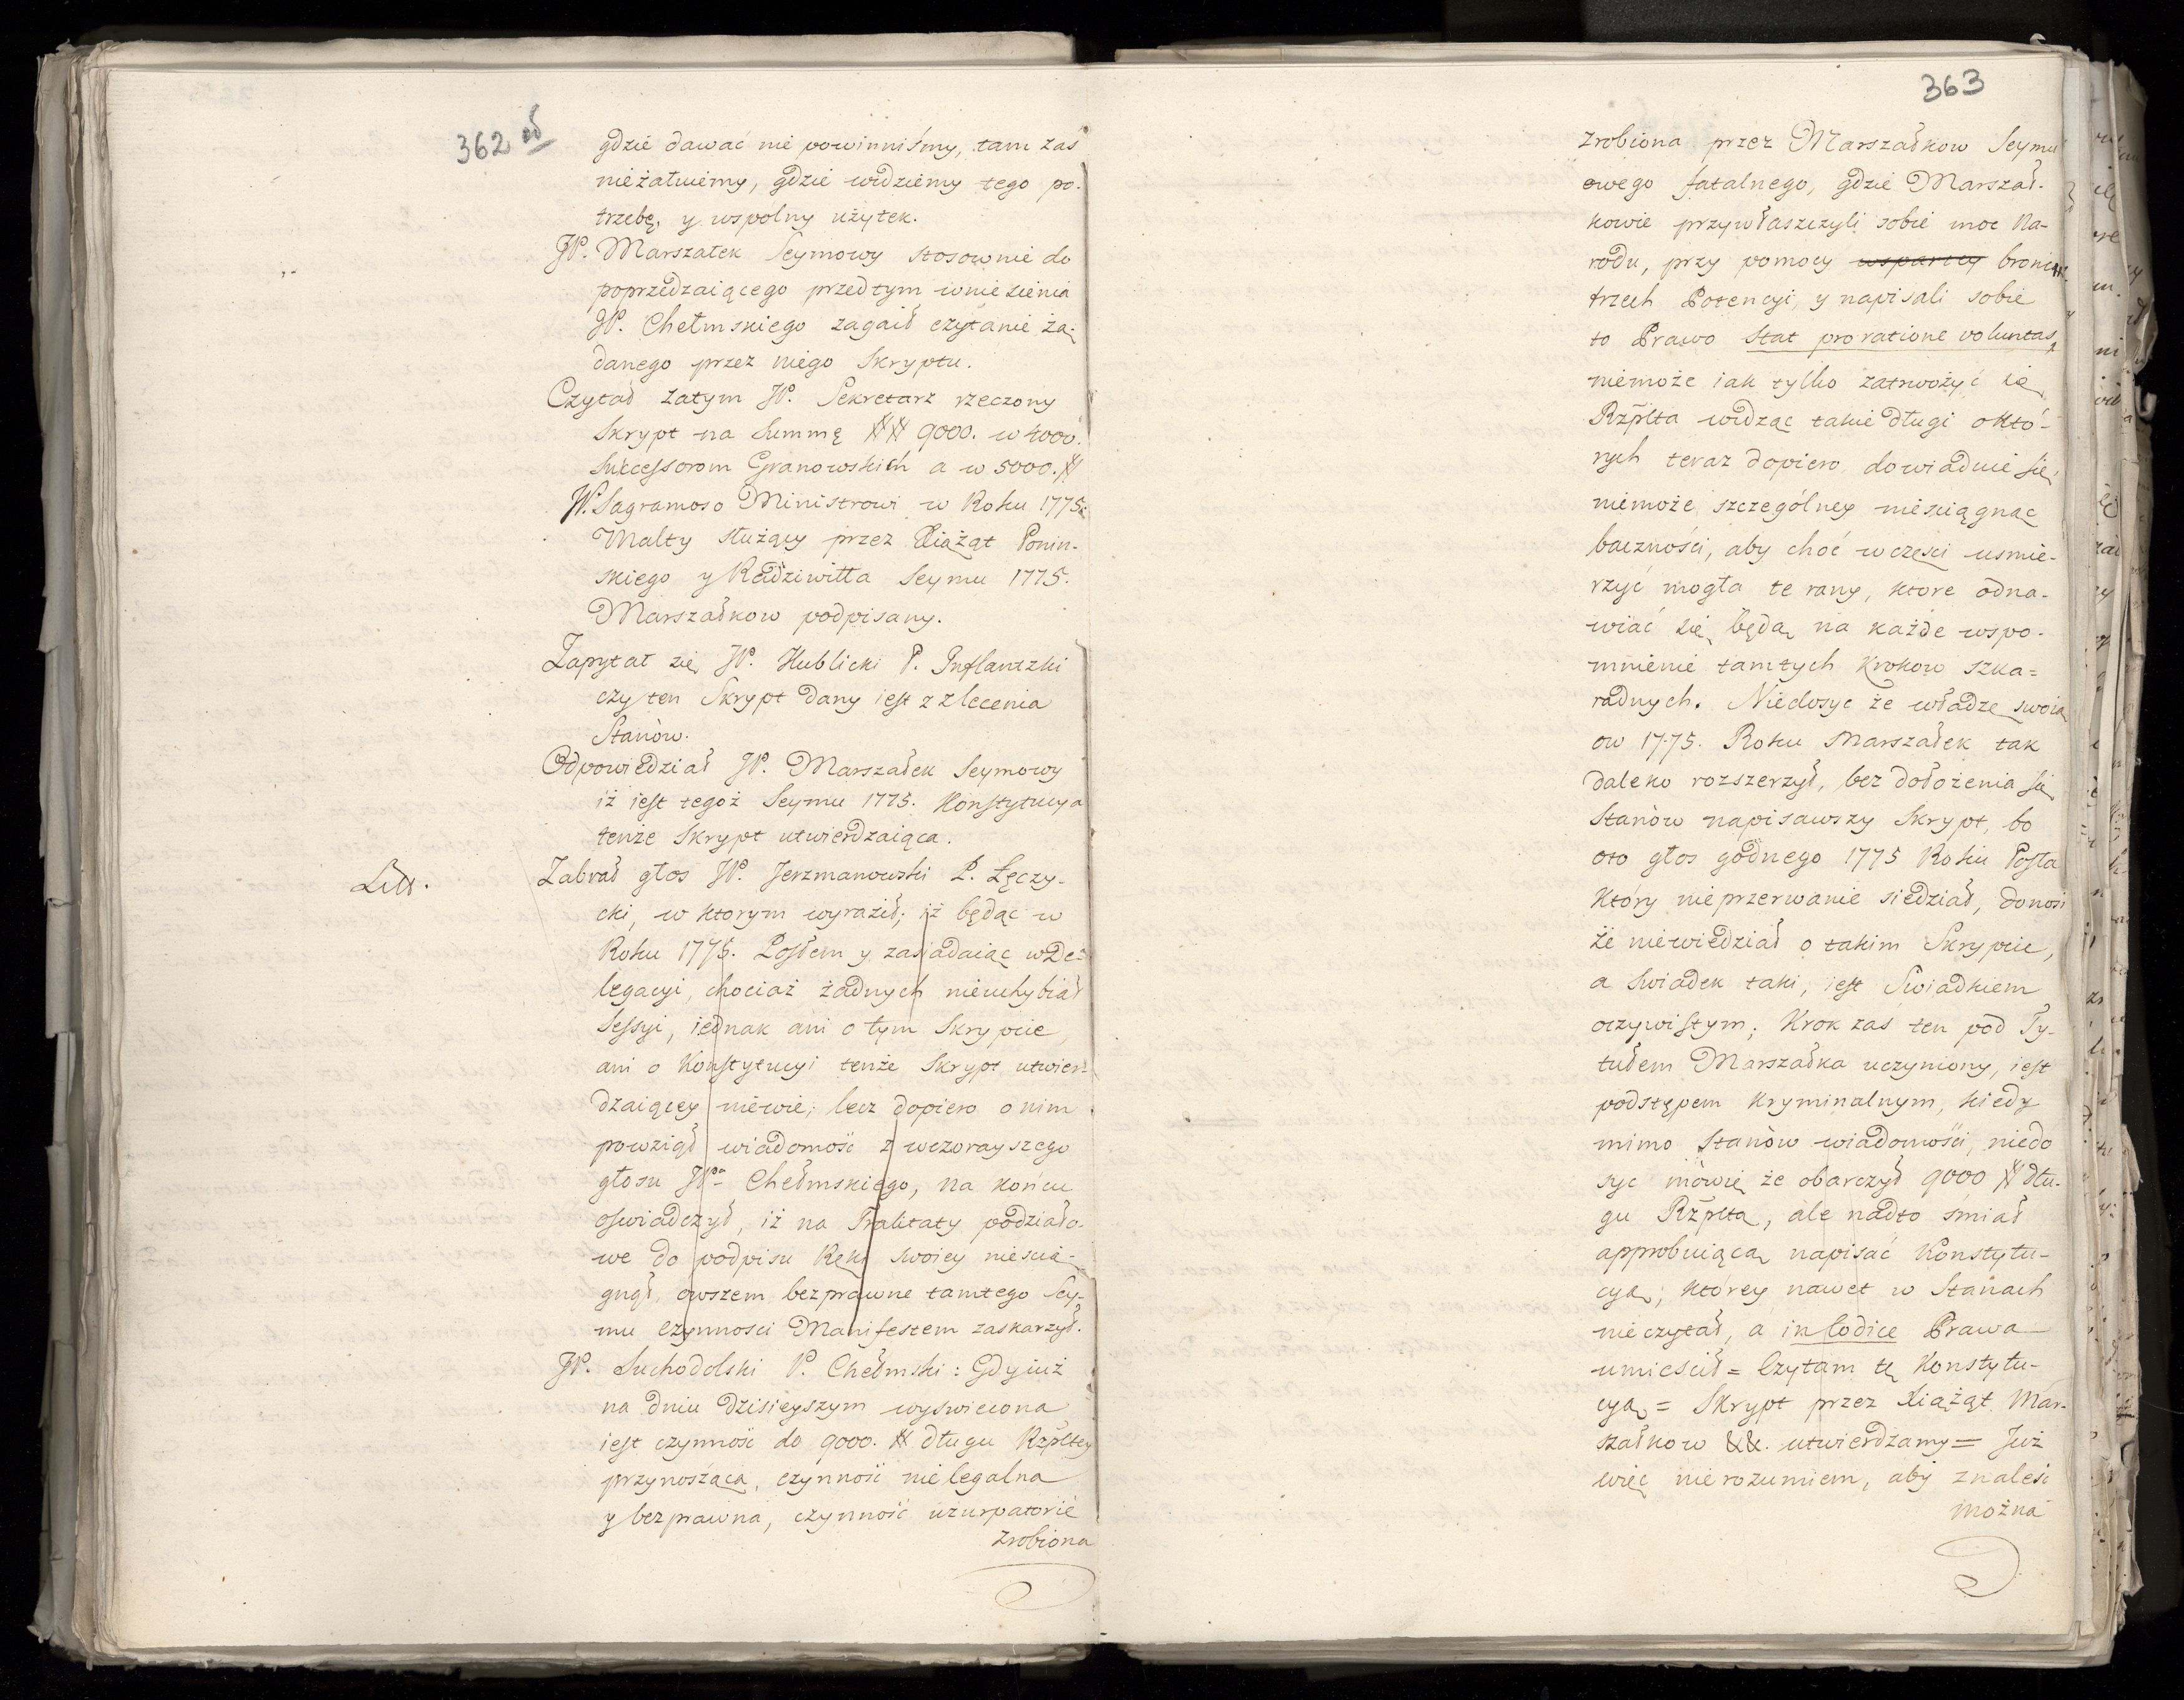 362 od
gdzie dawać nie powinniśmy, tam zaś
nieżałuiemy, gdzie widziemy tego po-
trzebę, y wspolny użytek.
JP. Marszałek Seymowy stosownie do
poprzedzaiącego przedtym wniesienia
JP. Chełmskiego zagaił czytanie żą-
danego przez niego Skryptu.
Czytał zatym JP. Sekretarz rzeczony
Skrypt na Summę ## 9000. w 4000.
Successorom Granowskich a w 5000. #
JP. Sagramoso Ministrowi w Roku 1775.
Malty służący przez Xiążąt Ponin-
skiego y Radziwiłła Seymu 1775.
Marszałkow podpisany.
Zapytał się JP. Kublicki P. Inflantzki
czy ten Skrypt dany iest z zlecenia
Stanów.
Odpowiedział JP. Marszałek Seymowy
iż iest tegoż Seymu 1775. Konstytucya
tenże Skrypt utwierdzaiąca.
Litt.
Zabrał głos JP. Jerzmanowski P. Łęczy-
cki, w ktorym wyraził; iż będąc w
Roku 1775. Posłem y zasiadaiąc w De-
legacyi, chociaż żadnych nieuchybiał
Sessyi, iednak ani o tym Skrypcie
ani o Konstytucyi tenże Skrypt utwier-
dzaiącey niewie, lecz dopiero o nim
powziął wiadomość z wczorayszego
głosu JPa Chełmskiego, na końcu
oświadczył, iż na Traktaty podziało-
we do podpisu Ręki swoiey niescią-
gnął, owszem bezprawne tamtego Sey-
mu czynnosci Manifestem zaskarzył.
JP. Suchodolski P. Chełmski: Gdy iuż
na dniu dzisieyszym wyswiecona
iest czynność do 9000. # długu Rzpltey
przynosząca, czynność nielegalna
y bezprawna, czynność uzurpatorie
zrobiona
363
zrobiona przez Marszałkow Seymu
owego fatalnego, gdzie Marszał-
kowie przywłaszczyli sobie moc Na-
rodu, przy pomocy wsparcy broni
trzech Potencyi, y napisali sobie
to Prawo Stat pro ratione voluntas,
niemoże iak tylko zatrwożyć się
Rzplta widząc takie długi o któ-
rych teraz dopiero dowiaduie się,
niemoże szczególney niesciągnąć
baczności, aby choć w części usmie-
rzyć mogła te rany, ktore odna-
wiać się będą na każde wspo-
mnienie tamtych krokow szka-
radnych. Niedosyc że władzę swoią
ow 1775. Roku Marszałek tak
daleko rozszerzył, bez dołożenia się
Stanów napisawszy Skrypt, bo
oto głos godnego 1775 Roku Posła
Który nieprzerwanie siedział, donosi
że niewiedział o takim Skrypcie,
a swiadek taki, iest Swiadkiem
oczywistym; Krok zaś ten pod Ty-
tułem Marszałka uczyniony, iest
podstępem Kryminalnym, kiedy
mimo Stanów wiadomości, niedo
syc mówię że obarczył 9000 # dłu-
gu Rzpltą, ale nadto śmiał
approbuiącą napisać Konstytu-
cyą; którey nawet w Stanach
nieczytał, a in Codice Prawa
umieścił = Czytam tę Konstytu-
cyą = Skrypt przez Xiążąt Mar-
szałkow &&. utwierdzamy = Już
więc nierozumiem, aby znaleść
można